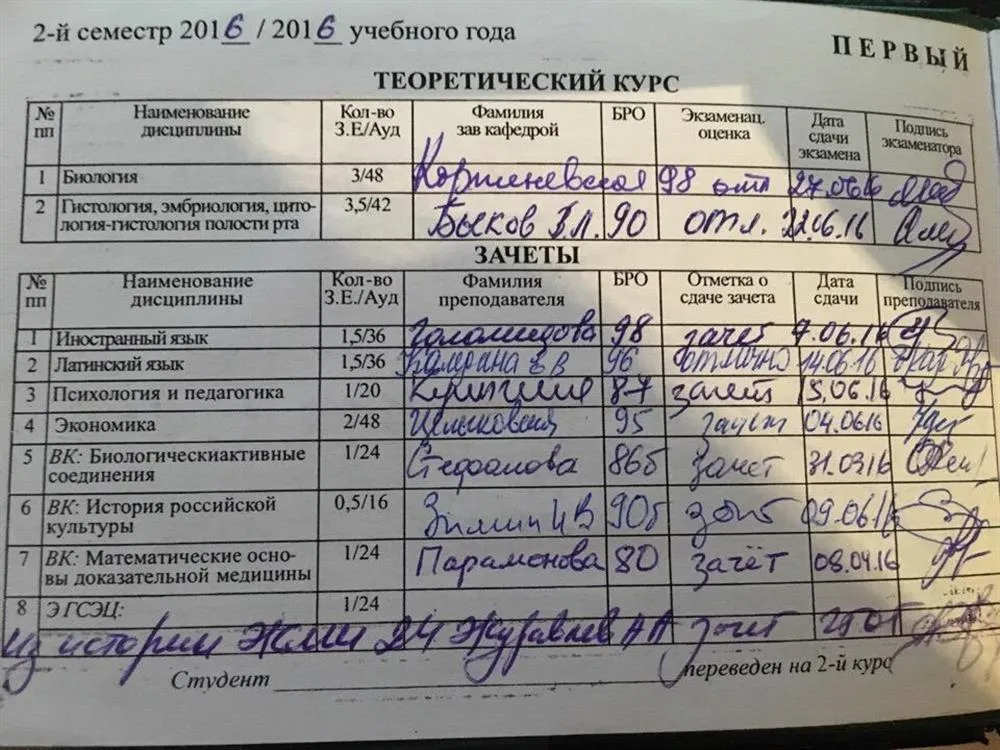 2-й семестр 2016 / 2016 учебного года
ПЕРВЫЙ
ТЕОРЕТИЧЕСКИЙ КУРС
№ пп Наименование дисциплины Кол-во З.Е/Ауд Фамилия зав кафедрой БРО Экзаменац. оценка Дата сдачи экзамена Подпись экзаменатора
1 Биология 3/48 98 отл 27.06.16
2 Гистология, эмбриология, цито-
логия-гистология полости рта 3,5/42 Быков В.Л. 90 отл. 22.06.16
ЗАЧЕТЫ
№ пп Наименование дисциплины Кол-во З.Е./Ауд Фамилия преподавателя БРО Отметка о сдаче зачета Дата сдачи Подпись преподавателя
1 Иностранный язык 1,5/36 98 зачет 7.06.16
2 Латинский язык 1,5/36 96 отлично 14.06.16
3 Психология и педагогика 1/20 87 зачет 15.06.16
4 Экономика 2/48 95 зачет 04.0616
5 ВК: Биологическиактивные
соединения 1/24 Стефанова 86б зачет 31.0316
6 ВК: История российской
культуры 0,5/16 Зимин И В 90б зачет 09.0616
7 ВК: Математические осно-
вы доказательной медицины 1/24 Парамонова 80 зачёт 08.04.16
8 Э ГСЭЦ: 1/24
из истории Журавлев АА зачет
Студент переведен на 2-й курс